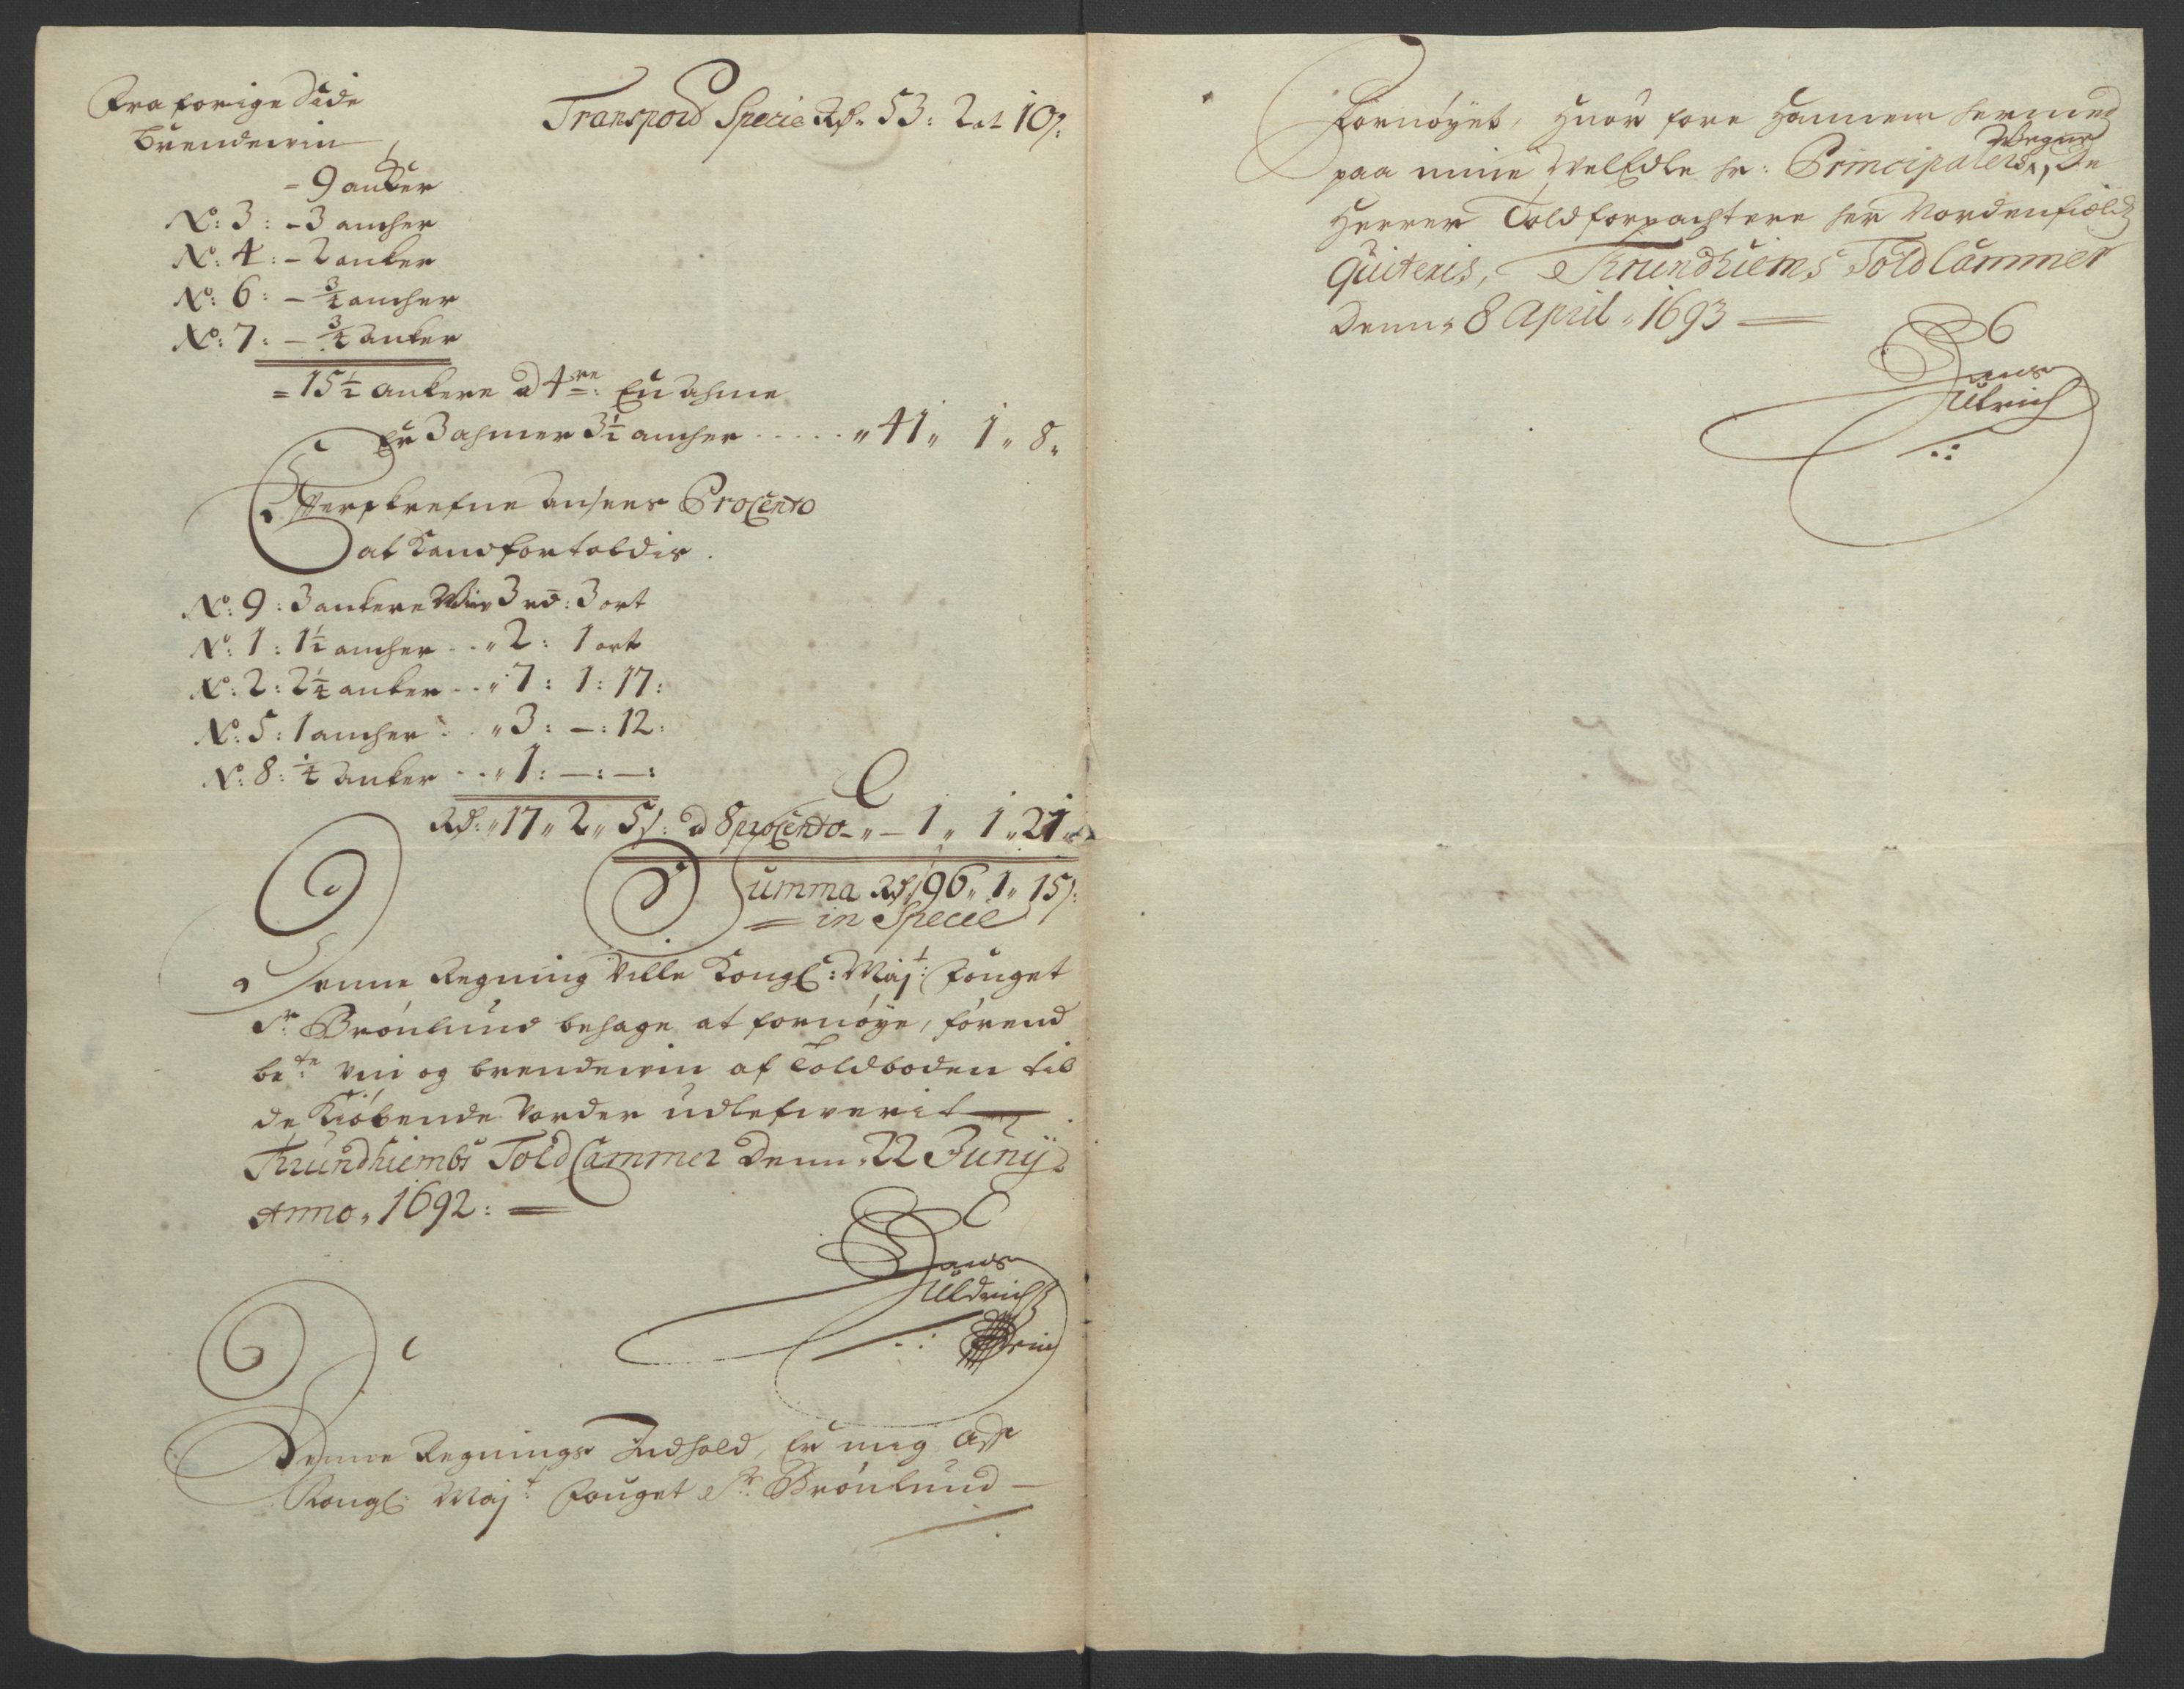 Fra forige Side
Brendewin
Transpord Specie Rd. 53: 2 ort 10 s:
= 9 anker
No: 3: - 3 ancher
No: 4: - 2 anker
No: 6: - 3/4 ancher
No: 7: - 3/4 anker
= 15 1/2 ankere a 4 re: En ahme
Er 3 ahmer 3 1/2 ancher ..... " 41 " 1 " 8 "
Efterskrefne ansees Procento
at kand fortoldis.
No: 9: 3 ankere Wiin 3 rd: 3 ort
No: 1: 1 1/2 ancher .. " 2: 1 ort
No: 2: 2 1/4 anker .. " 7: 1: 17:
No: 5: 1 ancher .. " 3: -: 12:
No: 8: 1/4 anker ... " 1: -: -:
Rd: " 17 " 2 " 5 s: a 8 procento - " - 1 " 1 " 21 "
Summa Rd 96 " 1 " 15 s:
= in Specie
Denne Regning Ville Kongl: Maj t: Fouget
Sr: Brønlund behage at fornøye, førend
be te: Vin og brendewin af Toldboden til
de Kiøbende Vorder udlefwerit
Trundhiembs Told Cammer Denn. 22 Junÿ
Anno. 1692: =
Hans
Uldrich
Denne Regnings Indhold, Er mig Aff
Kongl: Maj t: Fouget Sr: Brønlund -
Fornøyet, Huor fore Hannem hermed
paa mine WelEdle hr: Principalers Wegne, De
Herrer Toldforpachtere her Nordenfields
Quiteris, Trundhiems Told Cammer
Denn. 8 April. 1693
Hans
Ulrich